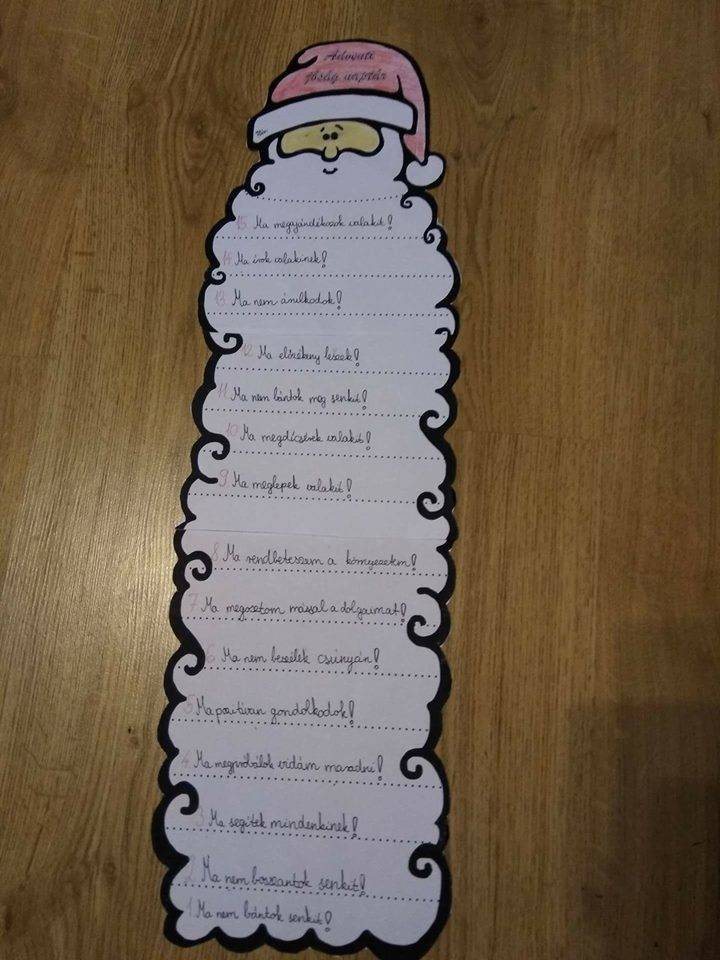 Adventi
jóság naptár
15. Ma megajándékozok valakit!
14. Ma írok valakinek!
13. Ma nem árulkodok!
12. Ma előzékeny leszek!
11. Ma nem bántok meg senkit!
10. Ma megdícsérek valakit!
9. Ma meglepek valakit!
8. Ma rendbeteszem a környezetem!
7. Ma megosztom mással a dolgaimat!
6. Ma nem beszélek csúnyán!
5. Ma pozitívan gondolkodok!
4. Ma megpróbálok vidám maradni!
3. Ma segítek mindenkinek!
2. Ma nem boszantok senkit!
1. Ma nem bántok senkit!